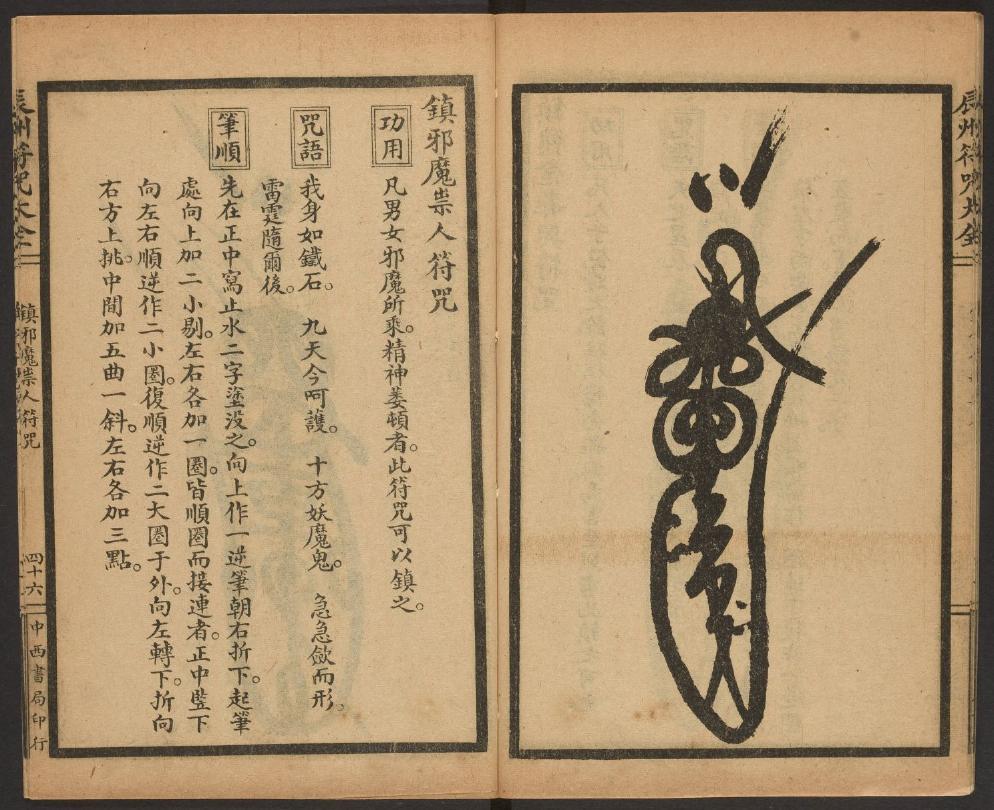 辰州符咒大全
鎮邪魔祟人符咒
功用
凡男女邪魔所乘。精神萎頓者。此符咒可以鎮之。
咒語
我身如鐵石。 九天今呵護。 十方妖魔鬼。 急急斂而形。
雷霆隨爾後。
筆順
先在正中寫止水二字塗没之。向上作一逆筆朝右折下。起筆
處向上加二小剔。左右各加一圈。皆順圈而接連者。正中豎下
向左右順逆作二小圈。復順逆作二大圈于外。向左轉下。折向
右方上挑。中間加五曲一斜。左右各加三點。
辰州符咒大全
鎮邪魔祟人符咒
四十六
中西書局印行